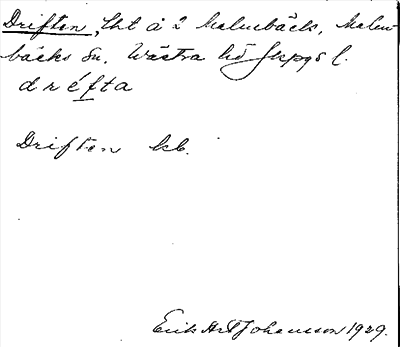 Driften, lht å 2 Malmbäck, Malm-
bäcks sn, Västra hd Jkpgs l.
drefta
Driften kb.
Erik Abr Johansson 1929.